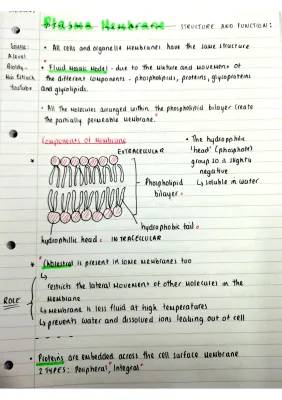 Plasma Membrane STRUCTURE AND FUNCTION:
Source:
A level
Biology -
YouTube
• All cells and organelle membranes have the same structure
• Fluid Mosaic Model - due to the mixture and movement of
the different components - phospholipids, proteins, glycoproteins
and glycolipids.
• All the molecules arranged within the phospholipid bilayer create
the partially permeable membrane.
Components of Membrane
EXTRACELLULAR
• The hydrophilic
'head' (phosphate)
group is a slightly
negative
↳ soluble in water
Phospholipid
bilayer.
hydrophobic tail.
hydrophillic head. INTRACELLULAR
ROLE
• Cholestrol is present in some membranes too
↳
restricts the lateral movement of other molecules in the
membrane
↳ membrane is less fluid at high temperatures
↳ prevents water and dissolved ions leaking out of cell
• Proteins are embedded across the cell surface membrane
2 TYPES: Peripheral, Integral